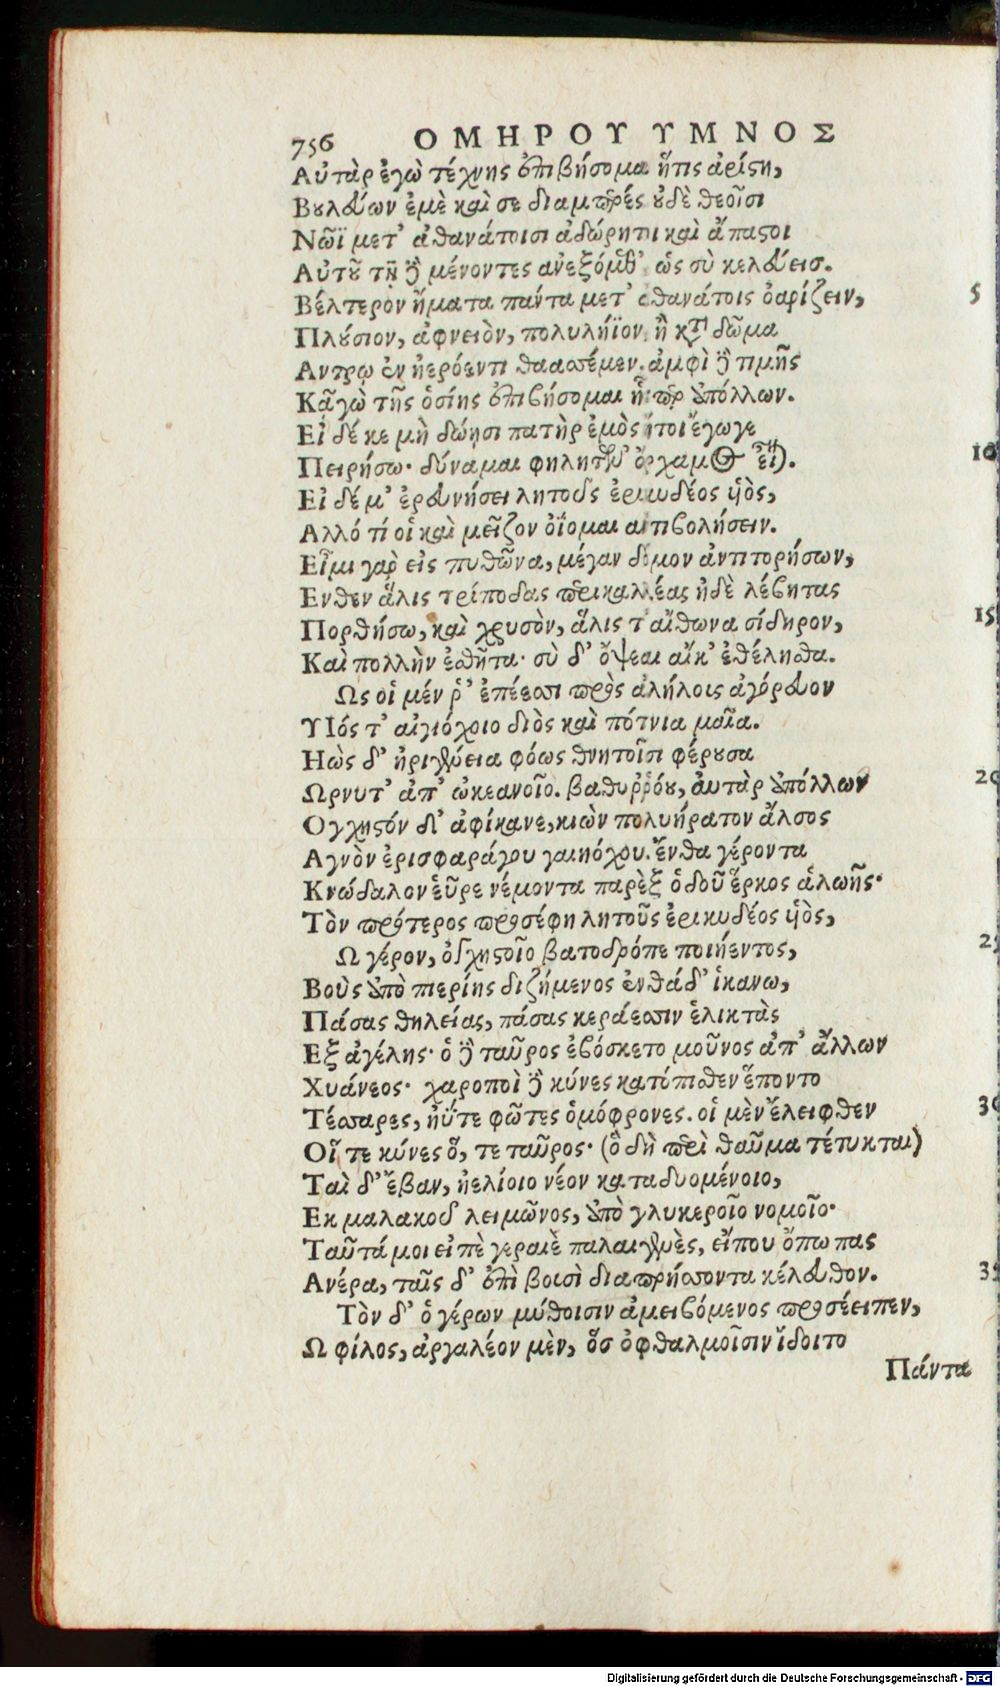 756 ΟΜΗΡΟΥ ΥΜΝΟΣ
Αὐτὰρ ἐγὼ τέχνης ἐπιβήσομαι ἥτις ἀρίστη,
Βουλεύων ἐμὲ καὶ σε διαμπερές οὐδὲ θεοῖσι
Νῶϊ μετ' ἀθανάτοισι ἀδώρητοι καὶ ἄπαστοι
Αὐτοῦ τῇδε μένοντες ἀνεξόμεθ' ὡς σὺ κελεύεισ.
Βέλτερον ἤματα πάντα μετ' ἀθανάτοις ὀαρίζειν, 5
Πλούσιον, ἀφνειὸν, πολυλήϊον, ἢ κατὰ δῶμα
Αντρῳ ἐν ἠερόεντι θαασσέμεν. ἀμφὶ δὲ τιμῆς
Κᾀγὼ τῆς ὁσίης ἐπιβήσομαι ἧς περ ἀπόλλων.
Εἰ δέ κε μὴ δώῃσι πατὴρ ἐμὸς ἤτοι ἔγωγε
Πειρήσω· δύναμαι φηλητέων ὄρχαμος εἶναι. 10
Εἰ δέ μ' ἐρευνήσει λητοῦς ἐρικυδέος υἱὸς,
Αλλό τί οἱ καὶ μεῖζον ὀΐομαι ἀντιβολήσειν.
Εἶμι γαρ εἰς πυθῶνα, μέγαν δόμον ἀντιτορήσων,
Ενθεν ἅλις τρίποδας περικαλλέας ἠδὲ λέβητας
Πορθήσω, καὶ χρυσὸν, ἅλις τ' αἴθωνα σίδηρον, 15
Καὶ πολλὴν ἐσθῆτα· σὺ δ' ὄψεαι αἴκ' ἐθέλησθα.
Ως οἱ μέν ῥ' ἐπέεσσι πρὸς ἀλήλοις ἀγόρευον
Υἱός τ' αἰγιόχοιο διὸς καὶ πότνια μαῖα.
Ηὼς δ' ἠριγένεια φόως θνητοῖσι φέρουσα
Ωρνυτ' ἀπ' ὠκεανοῖο. βαθυῤῥόου, ἀυτὰρ ἀπόλλων 20
Ογχηστόν δ' ἀφίκανε, κιὼν πολυήρατον ἄλσος
Αγνὸν ἐρισφαράγου γαιηόχου. ἔνθα γέροντα
Κνώδαλον εὗρε νέμοντα παρὲξ ὁδοῦ ἕρκος ἀλωῆς·
Τὸν πρότερος προσέφη λητοῦς ἐρικυδέος υἱὸς,
Ω γέρον, ὀγχηστοῖο βατοδρόπε ποιήεντος, 25
Βοὺς ἀπὸ πιερίης διζήμενος ἐνθάδ' ἱκανω,
Πάσας θηλείας, πάσας κεράεσσιν ἑλικτὰς
Εξ ἀγέλης· ὁ δὲ ταῦρος ἐβόσκετο μοῦνος ἀπ' ἄλλων
Χυάνεος· χαροποὶ δὲ κύνες κατόπισθεν ἕποντο
Τέσσαρες, ἠΰτε φῶτες ὁμόφρονες. οἱ μὲν ἔλειφθεν 30
Οἵ τε κύνες ὅ, τε ταῦρος· (ὃ δὴ περὶ θαῦμα τέτυκται)
Ταὶ δ' ἔβαν, ἠελίοιο νέον καταδυομένοιο,
Εκ μαλακοῦ λειμῶνος, ἀπὸ γλυκεροῖο νομοῖο·
Ταῦτά μοι εἰπὲ γεραιὲ παλαιγενὲς, εἴπου ὄπωπας
Ανέρα, ταῖς δ' ἐπὶ βουσὶ διαπρήσσοντα κέλευθον. 35
Τὸν δ' ὁ γέρων μύθοισιν ἀμειβόμενος προσέειπεν,
Ω φίλος, ἀργαλέον μὲν, ὅσ ὀφθαλμοῖσιν ἴδοιτο
Πάντα
Digitalisierung gefördert durch die Deutsche Forschungsgemeinschaft - DFG